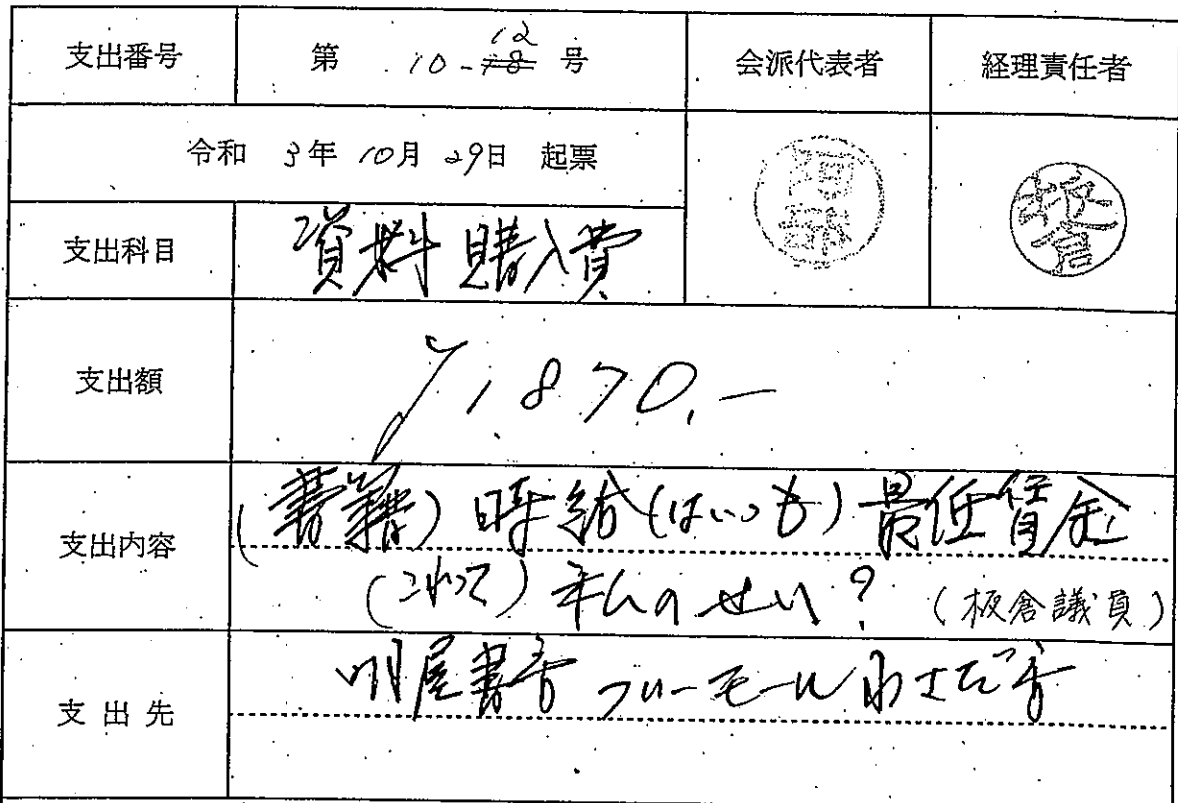 支出番号 第 10-12 号 会派代表者 経理責任者
令和 3年 10月 29日 起票 阿部 板倉
支出科目 資料購入費
支出額 ¥1,870.-
支出内容 (書籍) 時給(はいつも)最低賃金
(これって)私のせい? (板倉議員)
支出先 明屋書店 フリーモール